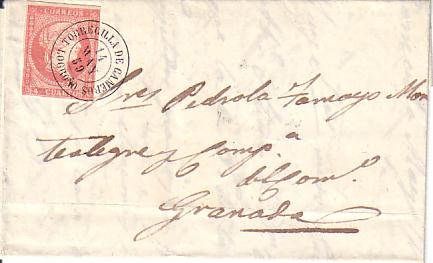 CORREOS
4 CUARTOS
TORRECILLA DE CAMEROS LOGROÑO
14
MAY
59
Sres Pedrola Tamayo Mon
telegre y Comp.
a
del Com.
Granada